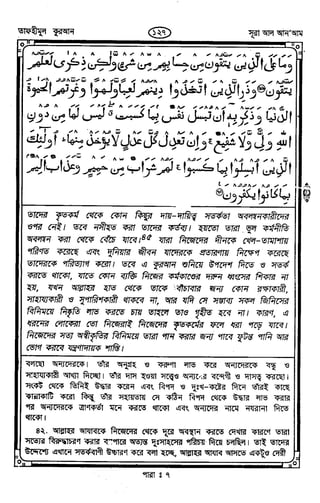 তাফহীমুল কুরআন
১২৭
সূরা আল আন'আম
وَمَا عَلَى الَّذِينَ يَتَّقُونَ مِنْ حِسَابِهِمْ مِنْ شَيْءٍ وَلَٰكِنْ ذِكْرَىٰ لَعَلَّهُمْ
يَتَّقُونَ ۝ وَذَرِ الَّذِينَ اتَّخَذُوا دِينَهُمْ لَعِبًا وَلَهْوًا وَغَرَّتْهُمُ الْحَيَاةُ
الدُّنْيَا وَذَكِّرْ بِهِ أَنْ تُبْسَلَ نَفْسٌ بِمَا كَسَبَتْ لَيْسَ لَهَا مِنْ دُونِ
اللَّهِ وَلِيٌّ وَلَا شَفِيعٌ وَإِنْ تَعْدِلْ كُلَّ عَدْلٍ لَا يُؤْخَذْ مِنْهَا أُولَٰئِكَ
الَّذِينَ أُبْسِلُوا بِمَا كَسَبُوا لَهُمْ شَرَابٌ مِنْ حَمِيمٍ وَعَذَابٌ أَلِيمٌ
بِمَا كَانُوا يَكْفُرُونَ ۝
তাদের কৃতকর্ম থেকে কোন কিছুর দায়-দায়িত্ব সতর্কতা অবলম্বনকারীদের
ওপর নেই। তবে নসীহত করা তাদের কর্তব্য। হয়তো তারা ভুল কর্মনীতি
অবলম্বন করা থেকে বেঁচে যাবে।৪৫ যারা নিজেদের দীনকে খেল-তামাশায়
পরিণত করেছে এবং দুনিয়ার জীবন যাদেরকে প্রতারণায় নিক্ষেপ করেছে
তাদেরকে পরিত্যাগ করো। তবে এ কুরআন শুনিয়ে উপদেশ দিতে ও সতর্ক
করতে থাকো, যাতে কোন ব্যক্তি নিজের কর্মকাণ্ডের দরুন ধ্বংসের শিকার না
হয়, যখন আল্লাহর হাত থেকে তাকে বাঁচাবার জন্য কোন রক্ষাকারী,
সাহায্যকারী ও সুপারিশকারী থাকবে না, আর যদি সে সম্ভাব্য সকল জিনিসের
বিনিময়ে নিষ্কৃতি লাভ করতে চায় তাহলে তাও গৃহীত হবে না। কারণ, এ
ধরনের লোকেরা তো নিজেরাই নিজেদের কৃতকর্মের ফলে ধরা পড়ে যাবে।
নিজেদের সত্য অস্বীকৃতির বিনিময়ে তারা পান করার জন্য পাবে ফুটন্ত পানি আর
ভোগ করবে যন্ত্রণাদায়ক শাস্তি।
বলছো অন্যদেরকে। তাঁর অনুগ্রহ ও করুণা লাভ করে অন্যদেরকে বন্ধু ও
সাহায্যকারী আখ্যা দিচ্ছো। তাঁর দাস হওয়া সত্ত্বেও অন্যের বন্দেগী ও দাসত্ব করছো।
সংকট থেকে তিনিই উদ্ধার করেন এবং বিপদ ও দুঃখ-কষ্টের দিনে তাঁরই কাছে
কান্নাকাটি করো কিন্তু তাঁর সহায়তায় সে কঠিন বিপদ থেকে উদ্ধার লাভ করার
পর অন্যদেরকে ত্রাণকর্তা মনে করতে থাকো এবং অন্যদের নামে নযরানা দিতে
থাকো।
৪২. আল্লাহর আযাবকে নিজেদের থেকে দূরে অবস্থান করতে দেখার কারণে তারা
সত্যের বিরুদ্ধাচরণ করার ব্যাপারে অত্যন্ত দুঃসাহসের পরিচয় দিয়ে চলছিল। তাই তাদের
উদ্দেশ্যে এখানে সতর্কবাণী উচ্চারণ করে বলা হচ্ছে, আল্লাহর আযাব আসতে একটুও দেরী
পারা : ৭